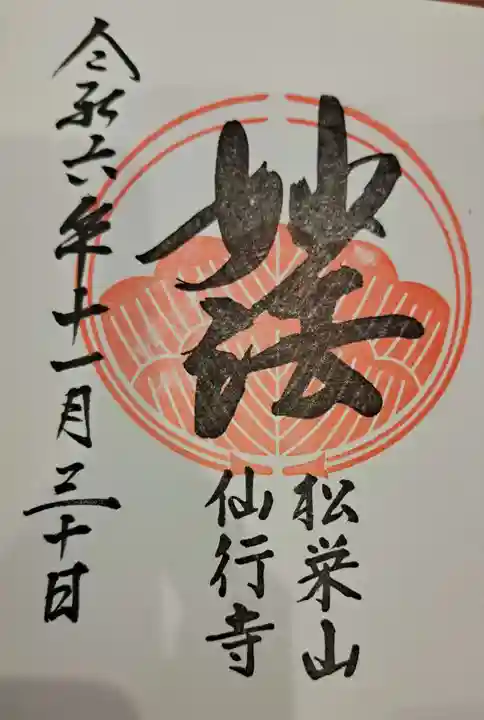 妙法
松栄山
仙行寺
令和六年十一月三十日